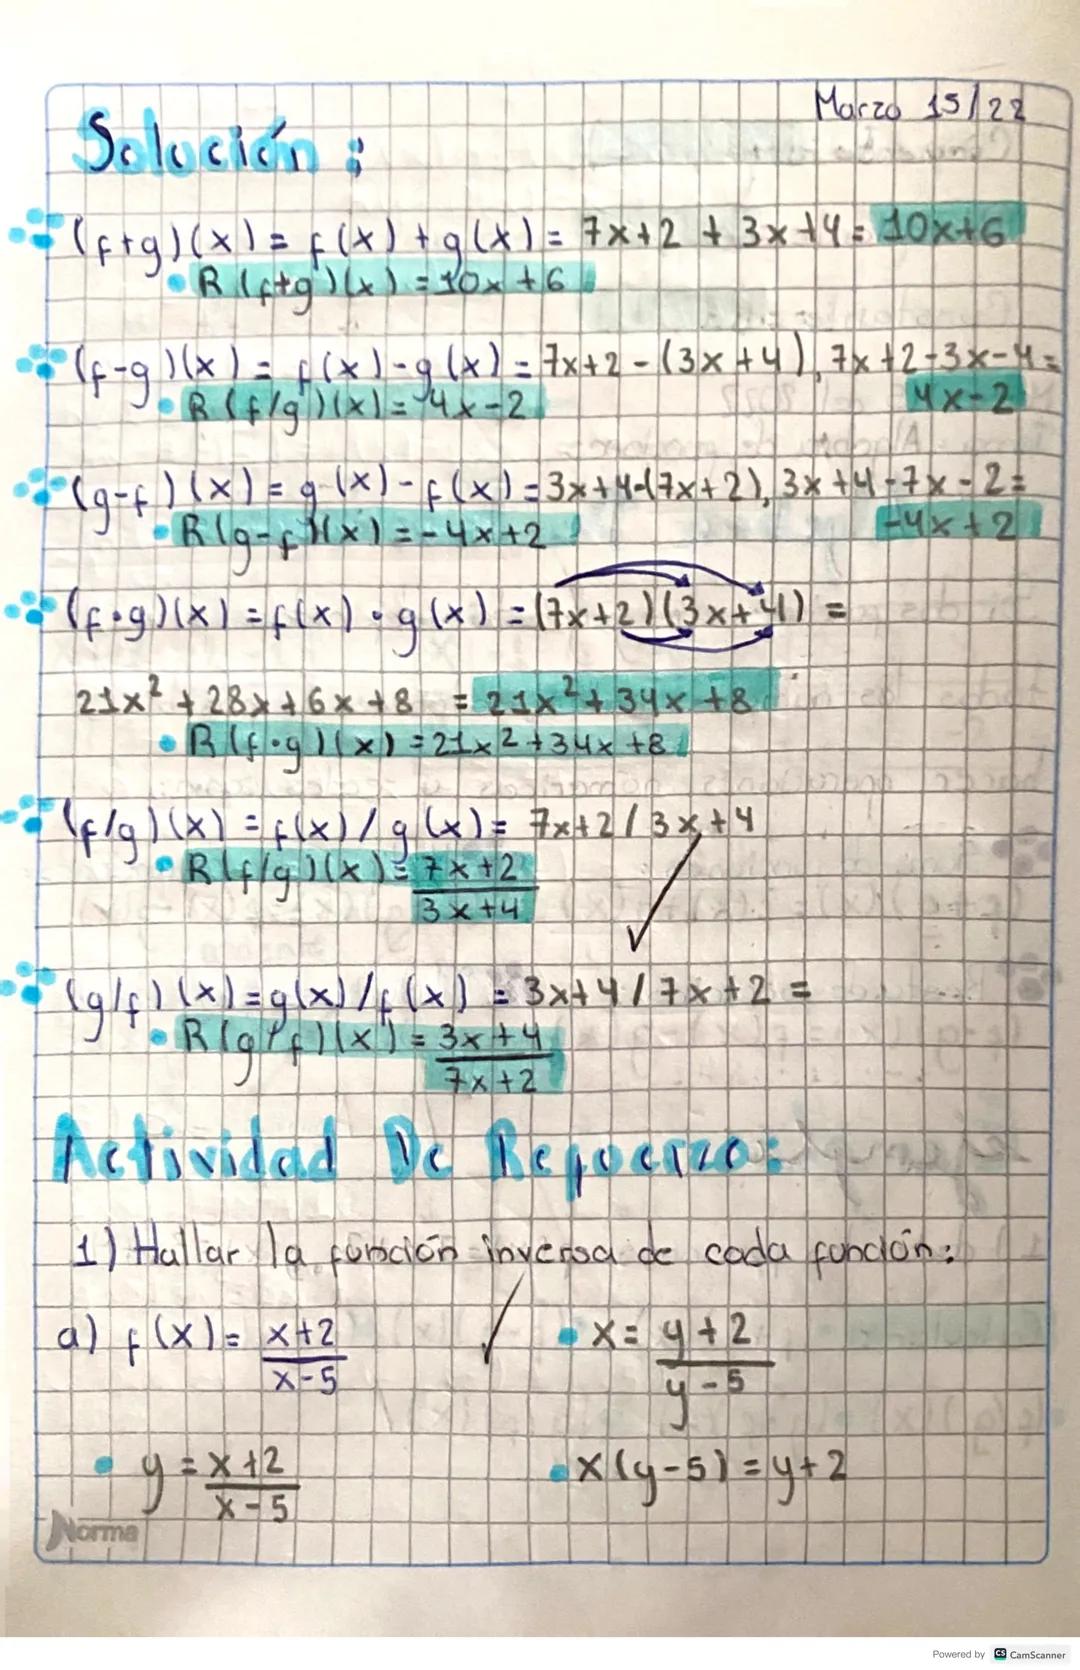 Marzo 15/22
Solución:
(f+g)(x) = f(x) + g(x) = 7x+2 + 3x+4 = 10x+6
R (f+g)(x) = 10x+6
(f-g)(x) = f(x)-g(x) = 7x+2 - (3x+4), 7x+2-3x-4=
R (f/g)(x) = 4x-2 4x-2
(g-f)(x) = g(x)-f(x) = 3x+4-(7x+2), 3x+4-7x-2=
R(g-f)(x) = -4x+2 -4x+2
(f•g)(x) = f(x) • g(x) = (7x+2)(3x+4) =
21x² + 28x + 6x + 8 = 21x² + 34x + 8
R(f•g)(x) = 21x² + 34x + 8
(f/g)(x) = f(x) / g(x) = 7x+2 / 3x+4
R(f/g)(x) = 7x+2
3x+4
(g/f)(x) = g(x) / f(x) = 3x+4 / 7x+2 =
R(g/f)(x) = 3x+4
7x+2
Actividad De Refuerzo:
1) Hallar la función inversa de cada función:
a) f(x) = x+2 • x = y+2
x-5 y-5
• y = x+2 • x(y-5) = y+2
x-5
Norma
Powered by CS CamScanner